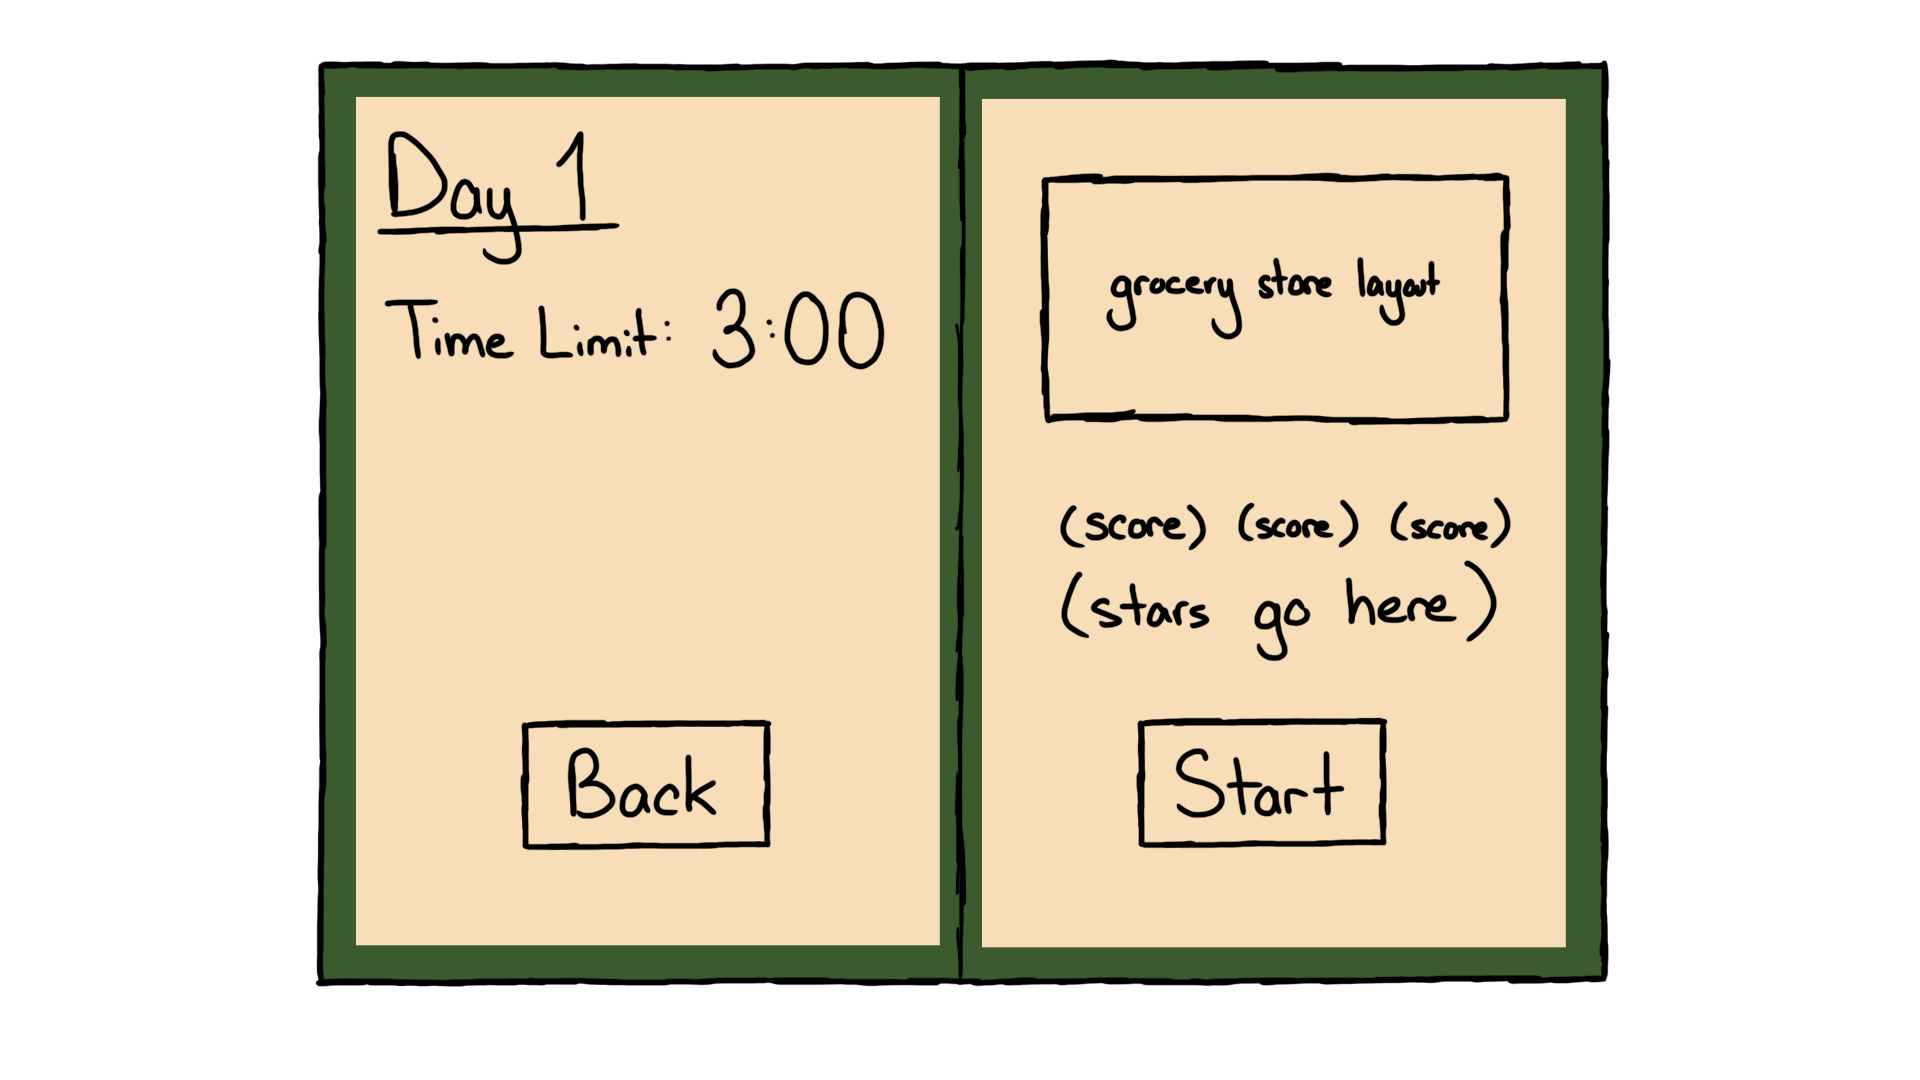 Day 1
Time Limit: 3:00
Back
grocery store layout
(score) (score) (score)
(stars go here)
Start